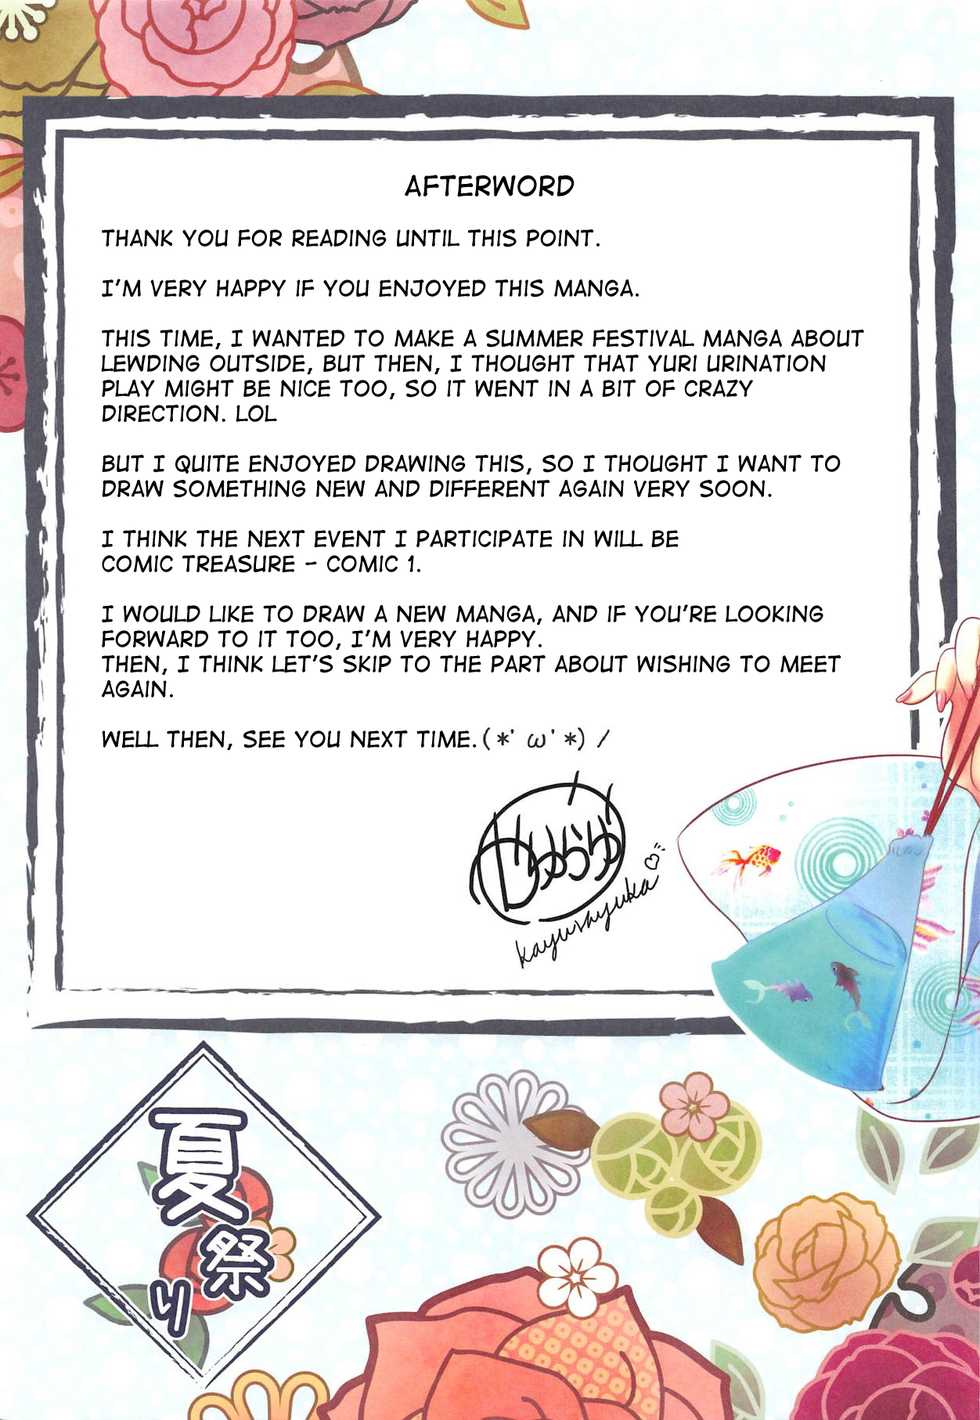 AFTERWORD
THANK YOU FOR READING UNTIL THIS POINT.
I'M VERY HAPPY IF YOU ENJOYED THIS MANGA.
THIS TIME, I WANTED TO MAKE A SUMMER FESTIVAL MANGA ABOUT
LEWDING OUTSIDE, BUT THEN, I THOUGHT THAT YURI URINATION
PLAY MIGHT BE NICE TOO, SO IT WENT IN A BIT OF CRAZY
DIRECTION. LOL
BUT I QUITE ENJOYED DRAWING THIS, SO I THOUGHT I WANT TO
DRAW SOMETHING NEW AND DIFFERENT AGAIN VERY SOON.
I THINK THE NEXT EVENT I PARTICIPATE IN WILL BE
COMIC TREASURE - COMIC 1.
I WOULD LIKE TO DRAW A NEW MANGA, AND IF YOU'RE LOOKING
FORWARD TO IT TOO, I'M VERY HAPPY.
THEN, I THINK LET'S SKIP TO THE PART ABOUT WISHING TO MEET
AGAIN.
WELL THEN, SEE YOU NEXT TIME. (*' ω '*) /
夏祭り